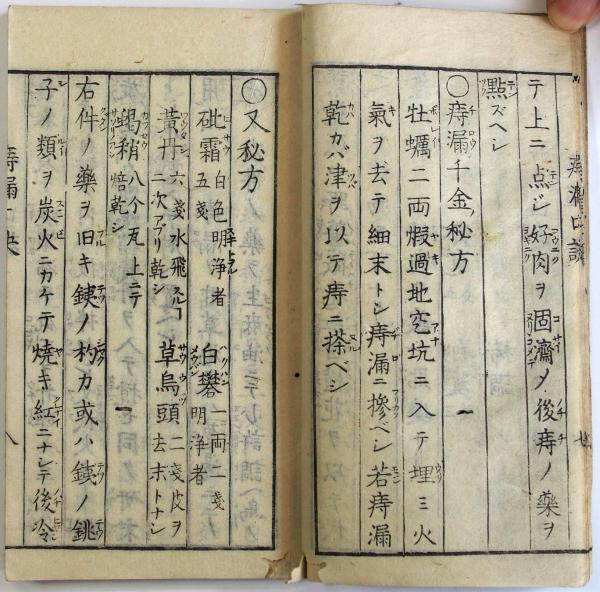 テ上ニ点ジ好肉ヲ固濟メ後痔ノ藥ヲ
點ズベシ
〇痔漏千金秘方
牡蠣二両煆過地空坑ニ入テ埋ミ火
氣ヲ去テ細末トシ痔漏ニ摻ベシ若痔漏
乾カバ津ヲ以テ痔ニ搽ベシ
〇又秘方
砒霜五戔白色明浄者 白礬一両二戔明浄者
黃丹六戔水飛二次アブリ乾シ 草烏頭二戔皮ヲ去末トナシ
蝎稍八个瓦上ニテ焙乾シ
右件ノ藥ヲ旧キ銕ノ杓カ或ハ銕ノ銚
子ノ類ヲ炭火ニカケテ焼キ紅ニナシテ後冷